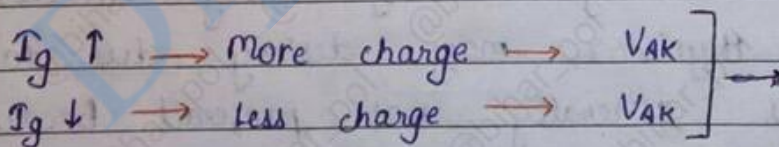 Ig ↑ → More charge → VAK ] →
Ig ↓ → Less charge → VAK